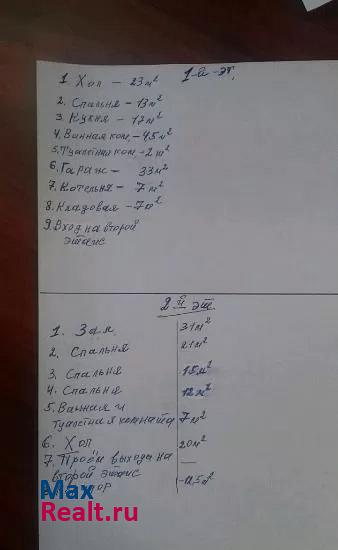 1-й эт.
1. Хол - 23 м²
2. Спальня - 13 м²
3. Кухня - 17 м²
4. Ванная ком. - 4,5 м²
5. Туалетная ком. - 2 м²
6. Гараж - 33 м²
7. Котельня - 7 м²
8. Кладовая - 7 м²
9. Вход на второй
этаж
2й эт.
1. Зал 31 м²
2. Спальня 21 м²
3. Спальня 15 м²
4. Спальня 12 м²
5. Ванная и
туалетная комната 7 м²
6. Хол 20 м²
7. Проём выхода на —
второй этаж
Max
Realt.ru